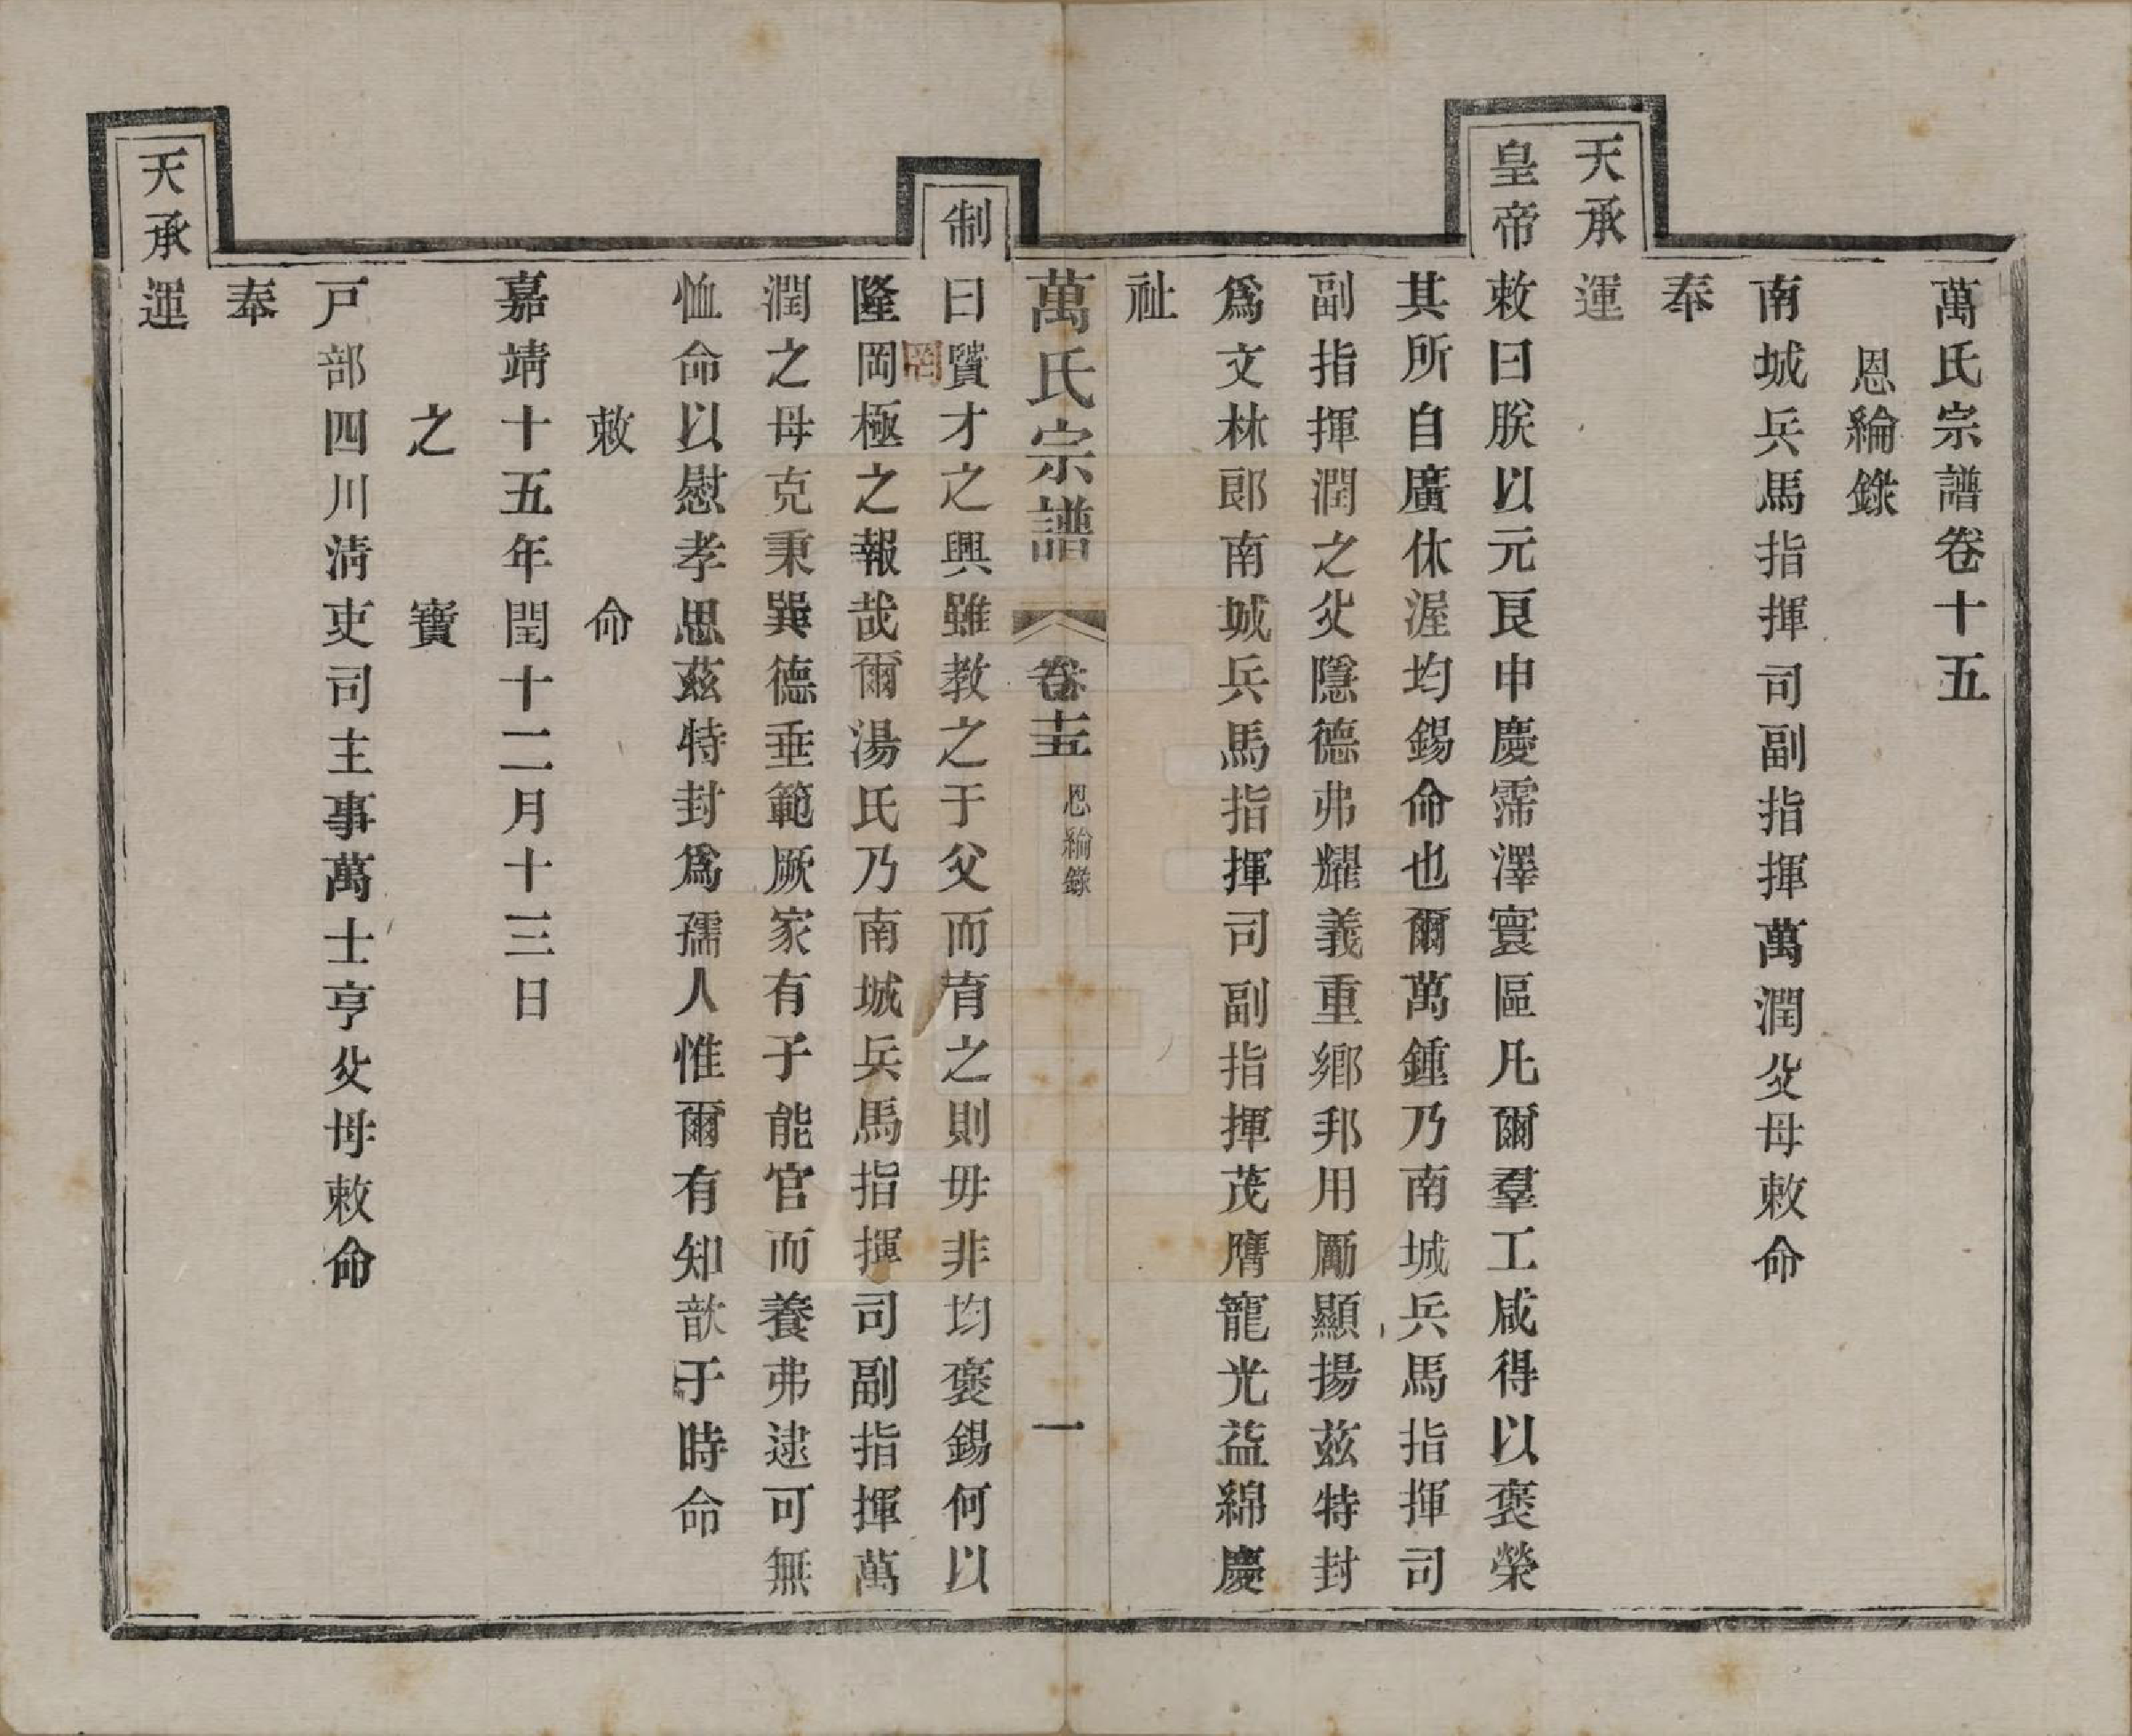 萬氏宗譜卷十五
恩綸錄
南城兵馬指揮司副指揮萬潤父母敕命
奉
天承運
皇帝敕曰朕以元良申慶霈澤寰區凡爾羣工咸得以褒榮
其所自廣休渥均錫命也爾萬鍾乃南城兵馬指揮司
副指揮潤之父隱德弗耀義重鄉邦用勵顯揚兹特封
爲文林郎南城兵馬指揮司副指揮茂膺寵光益綿慶
祉
萬氏宗譜 卷十五 恩綸錄 一
制曰賢才之興雖教之于父而育之則毋非均褒錫何以
隆岡極之報哉爾湯氏乃南城兵馬指揮司副指揮萬
罔
潤之母克秉巽德垂範厥家有子能官而養弗逮可無
恤命以慰孝思茲特封爲孺人惟爾有知歆于時命
敕命
嘉靖十五年閏十二月十三日
之寶
戸部四川淸吏司主事萬士亨父母敕命
奉
天承運